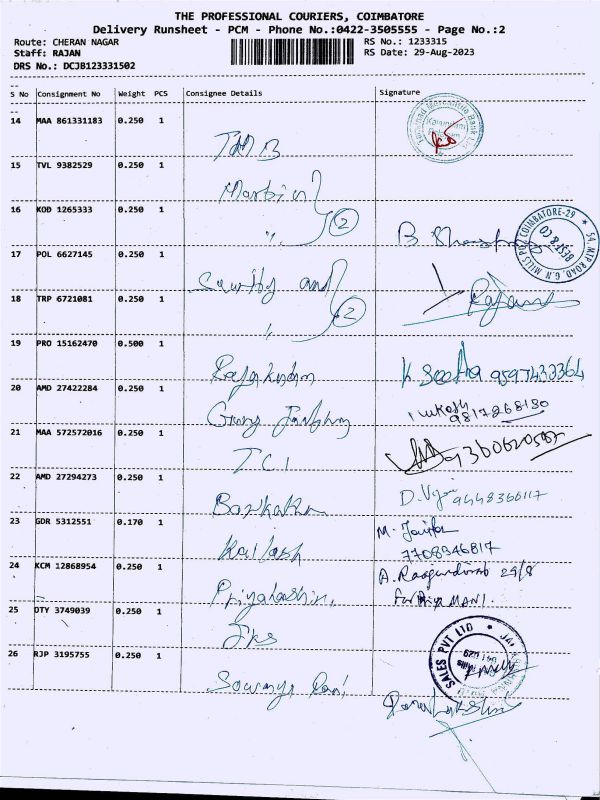 THE PROFESSIONAL COURIERS, COIMBATORE
Delivery Runsheet - PCM - Phone No.:0422-3505555 - Page No.:2
Route: CHERAN NAGAR
RS No.: 1233315
Staff: RAJAN
RS Date: 29-Aug-2023
DRS No.: DCJB123331502
S No Consignment No Weight PCS Consignee Details Signature
14 MAA 861331183 0.250 1
TMB
15 TVL 9382529 0.250 1
Martin
16 KOD 1265333 0.250 1
" 2
B
COIMBATORE-29
54, MTP ROAD, G.N. MILLS PO
17 POL 6627145 0.250 1
and
18 TRP 6721081 0.250 1
" 2
Rajan
19 PRO 15162470 0.500 1
K Seetha 9597433364
20 AMD 27422284 0.250 1
9817268130
21 MAA 572572016 0.250 1
TCI
9360620582
22 AMD 27294273 0.250 1
D.
9448366117
23 GDR 5312551 0.170 1
Kailash
M.
7708946817
24 KCM 12868954 0.250 1
A. 29/8
for Priya MANI.
25 DTY 3749039 0.250 1
Jks
SALES PVT LTD
26 RJP 3195755 0.250 1
Sowmya Rani